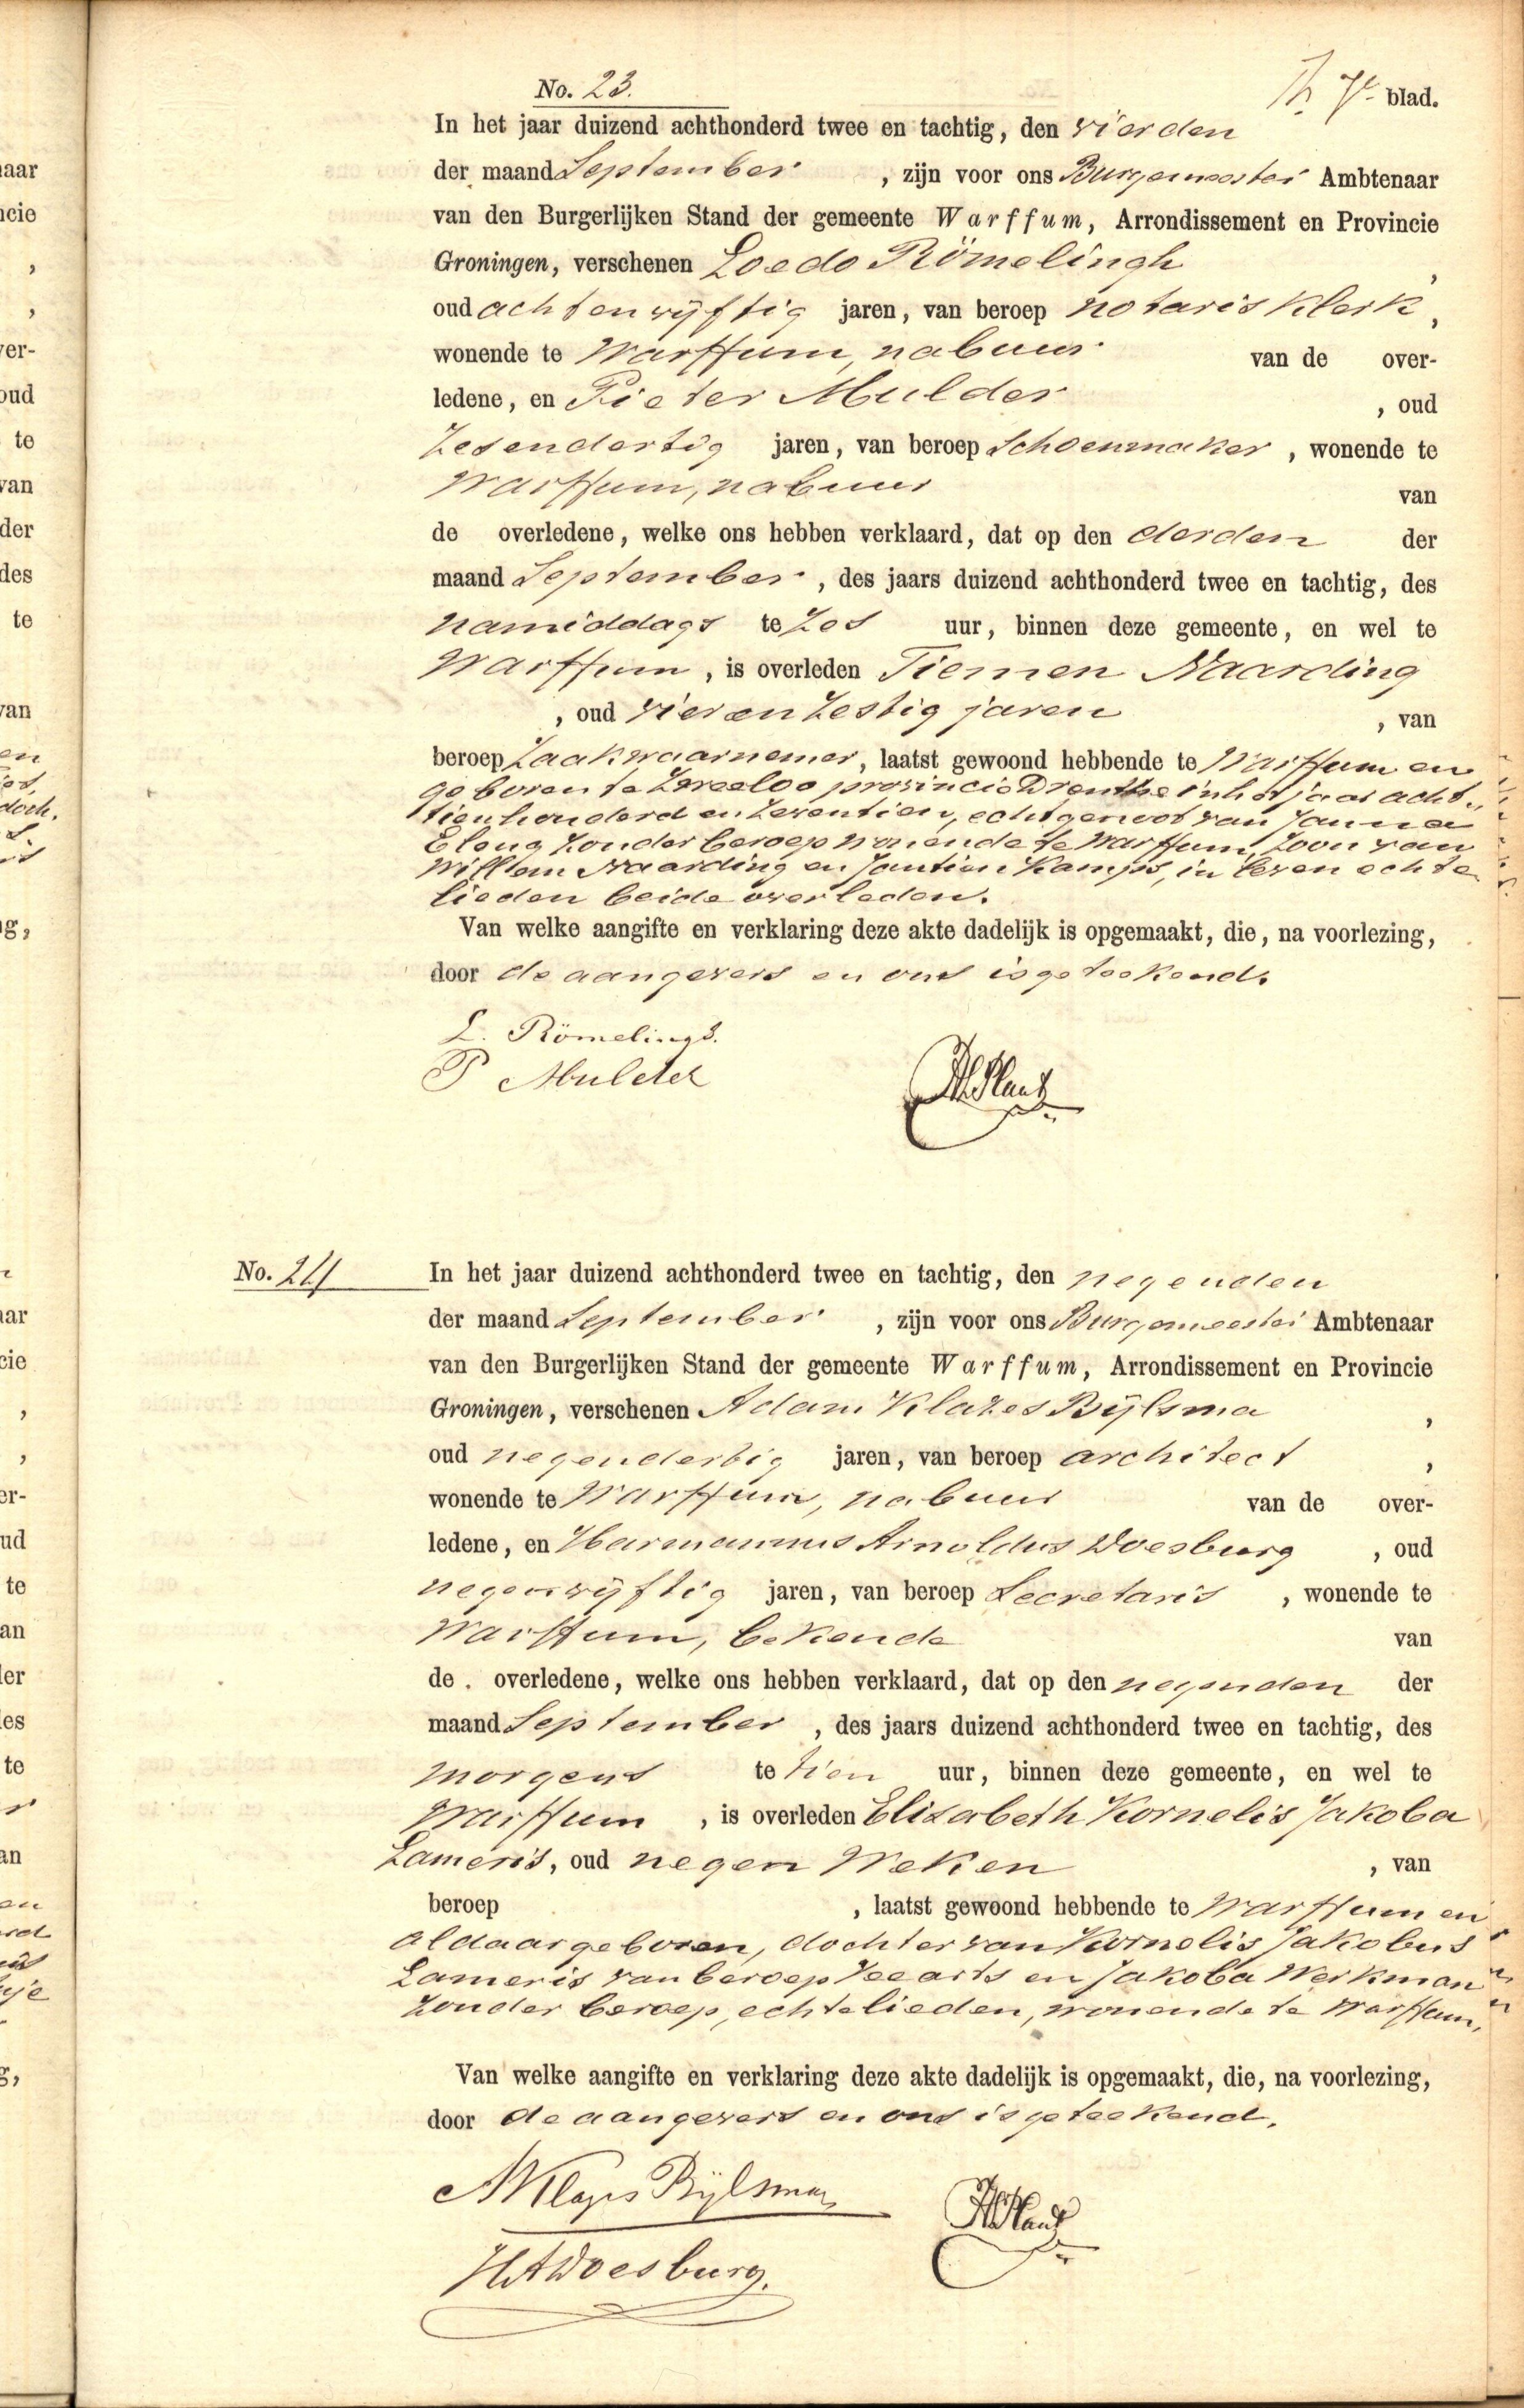 No. 23.
7e blad.
In het jaar duizend achthonderd twee en tachtig, den vierden
der maand September, zijn voor ons Burgemeester Ambtenaar
van den Burgerlijken Stand der gemeente Warffum, Arrondissement en Provincie
Groningen, verschenen Loedo Römelingh,
oud achtenvijftig jaren, van beroep notarisklerk,
wonende te Warffum, nabuur van de over-
ledene, en Pieter Mulder, oud
zesendertig jaren, van beroep Schoenmaker, wonende te
Warffum, nabuur van
de overledene, welke ons hebben verklaard, dat op den derden der
maand September, des jaars duizend achthonderd twee en tachtig, des
namiddags te zes uur, binnen deze gemeente, en wel te
Warffum, is overleden Tiemen Naarding
, oud vierenzestig jaren, van
beroep Zaakwaarnemer, laatst gewoond hebbende te Warffum en
geboren te Zweeloo provincie Drenthe in het jaar acht-
tienhonderd en zeventien, echtgenoot van Janna
Eleng zonder beroep wonende te Warffum, zoon van
Willem Naarding en Jantien Kamps, in leven echte
lieden beide overleden.
Van welke aangifte en verklaring deze akte dadelijk is opgemaakt, die, na voorlezing,
door de aangevers en ons is geteekend.
L. Römelingh.
P Mulder
No. 24
In het jaar duizend achthonderd twee en tachtig, den negenden
der maand September, zijn voor ons Burgemeester Ambtenaar
van den Burgerlijken Stand der gemeente Warffum, Arrondissement en Provincie
Groningen, verschenen Adam Klazes Bijlsma,
oud negendertig jaren, van beroep architect,
wonende te Warffum, nabuur van de over-
ledene, en Harmannus Arnoldus Doesburg, oud
negenvijftig jaren, van beroep Secretaris, wonende te
Warffum, bekende van
de overledene, welke ons hebben verklaard, dat op den negenden der
maand September, des jaars duizend achthonderd twee en tachtig, des
morgens te tien uur, binnen deze gemeente, en wel te
Warffum, is overleden Elizabeth Kornelis Jakoba
Lameris, oud negen Weken, van
beroep , laatst gewoond hebbende te Warffum en
aldaar geboren, dochter van Kornelis Jakobus
Lameris van beroep Veearts en Jakoba Werkman
zonder beroep, echtelieden, wonende te Warffum.
Van welke aangifte en verklaring deze akte dadelijk is opgemaakt, die, na voorlezing,
door de aangevers en ons is geteekend.
A Klazes Bijlsma
HADoesburg.